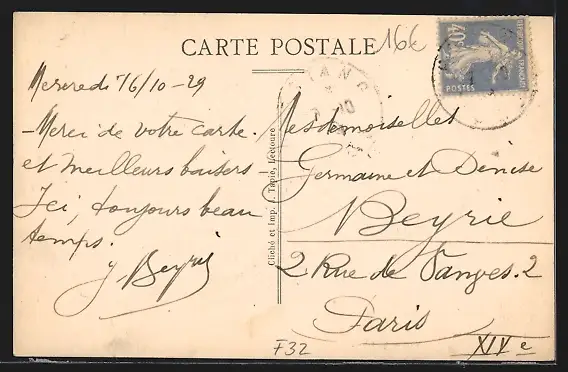 CARTE POSTALE
16€
40c
REPUBLIQUE FRANCAISE
POSTES
Mercredi 16/10-29
- Merci de votre carte.
et meilleurs baisers -
Ici, toujours beau
temps.
J. Beyrie
Cliché et Imp. J. Tapie, Lectoure
Mesdemoiselles
Germaine et Denise
Beyrie
2 Rue de Vanves. 2
Paris
XIVe
F32